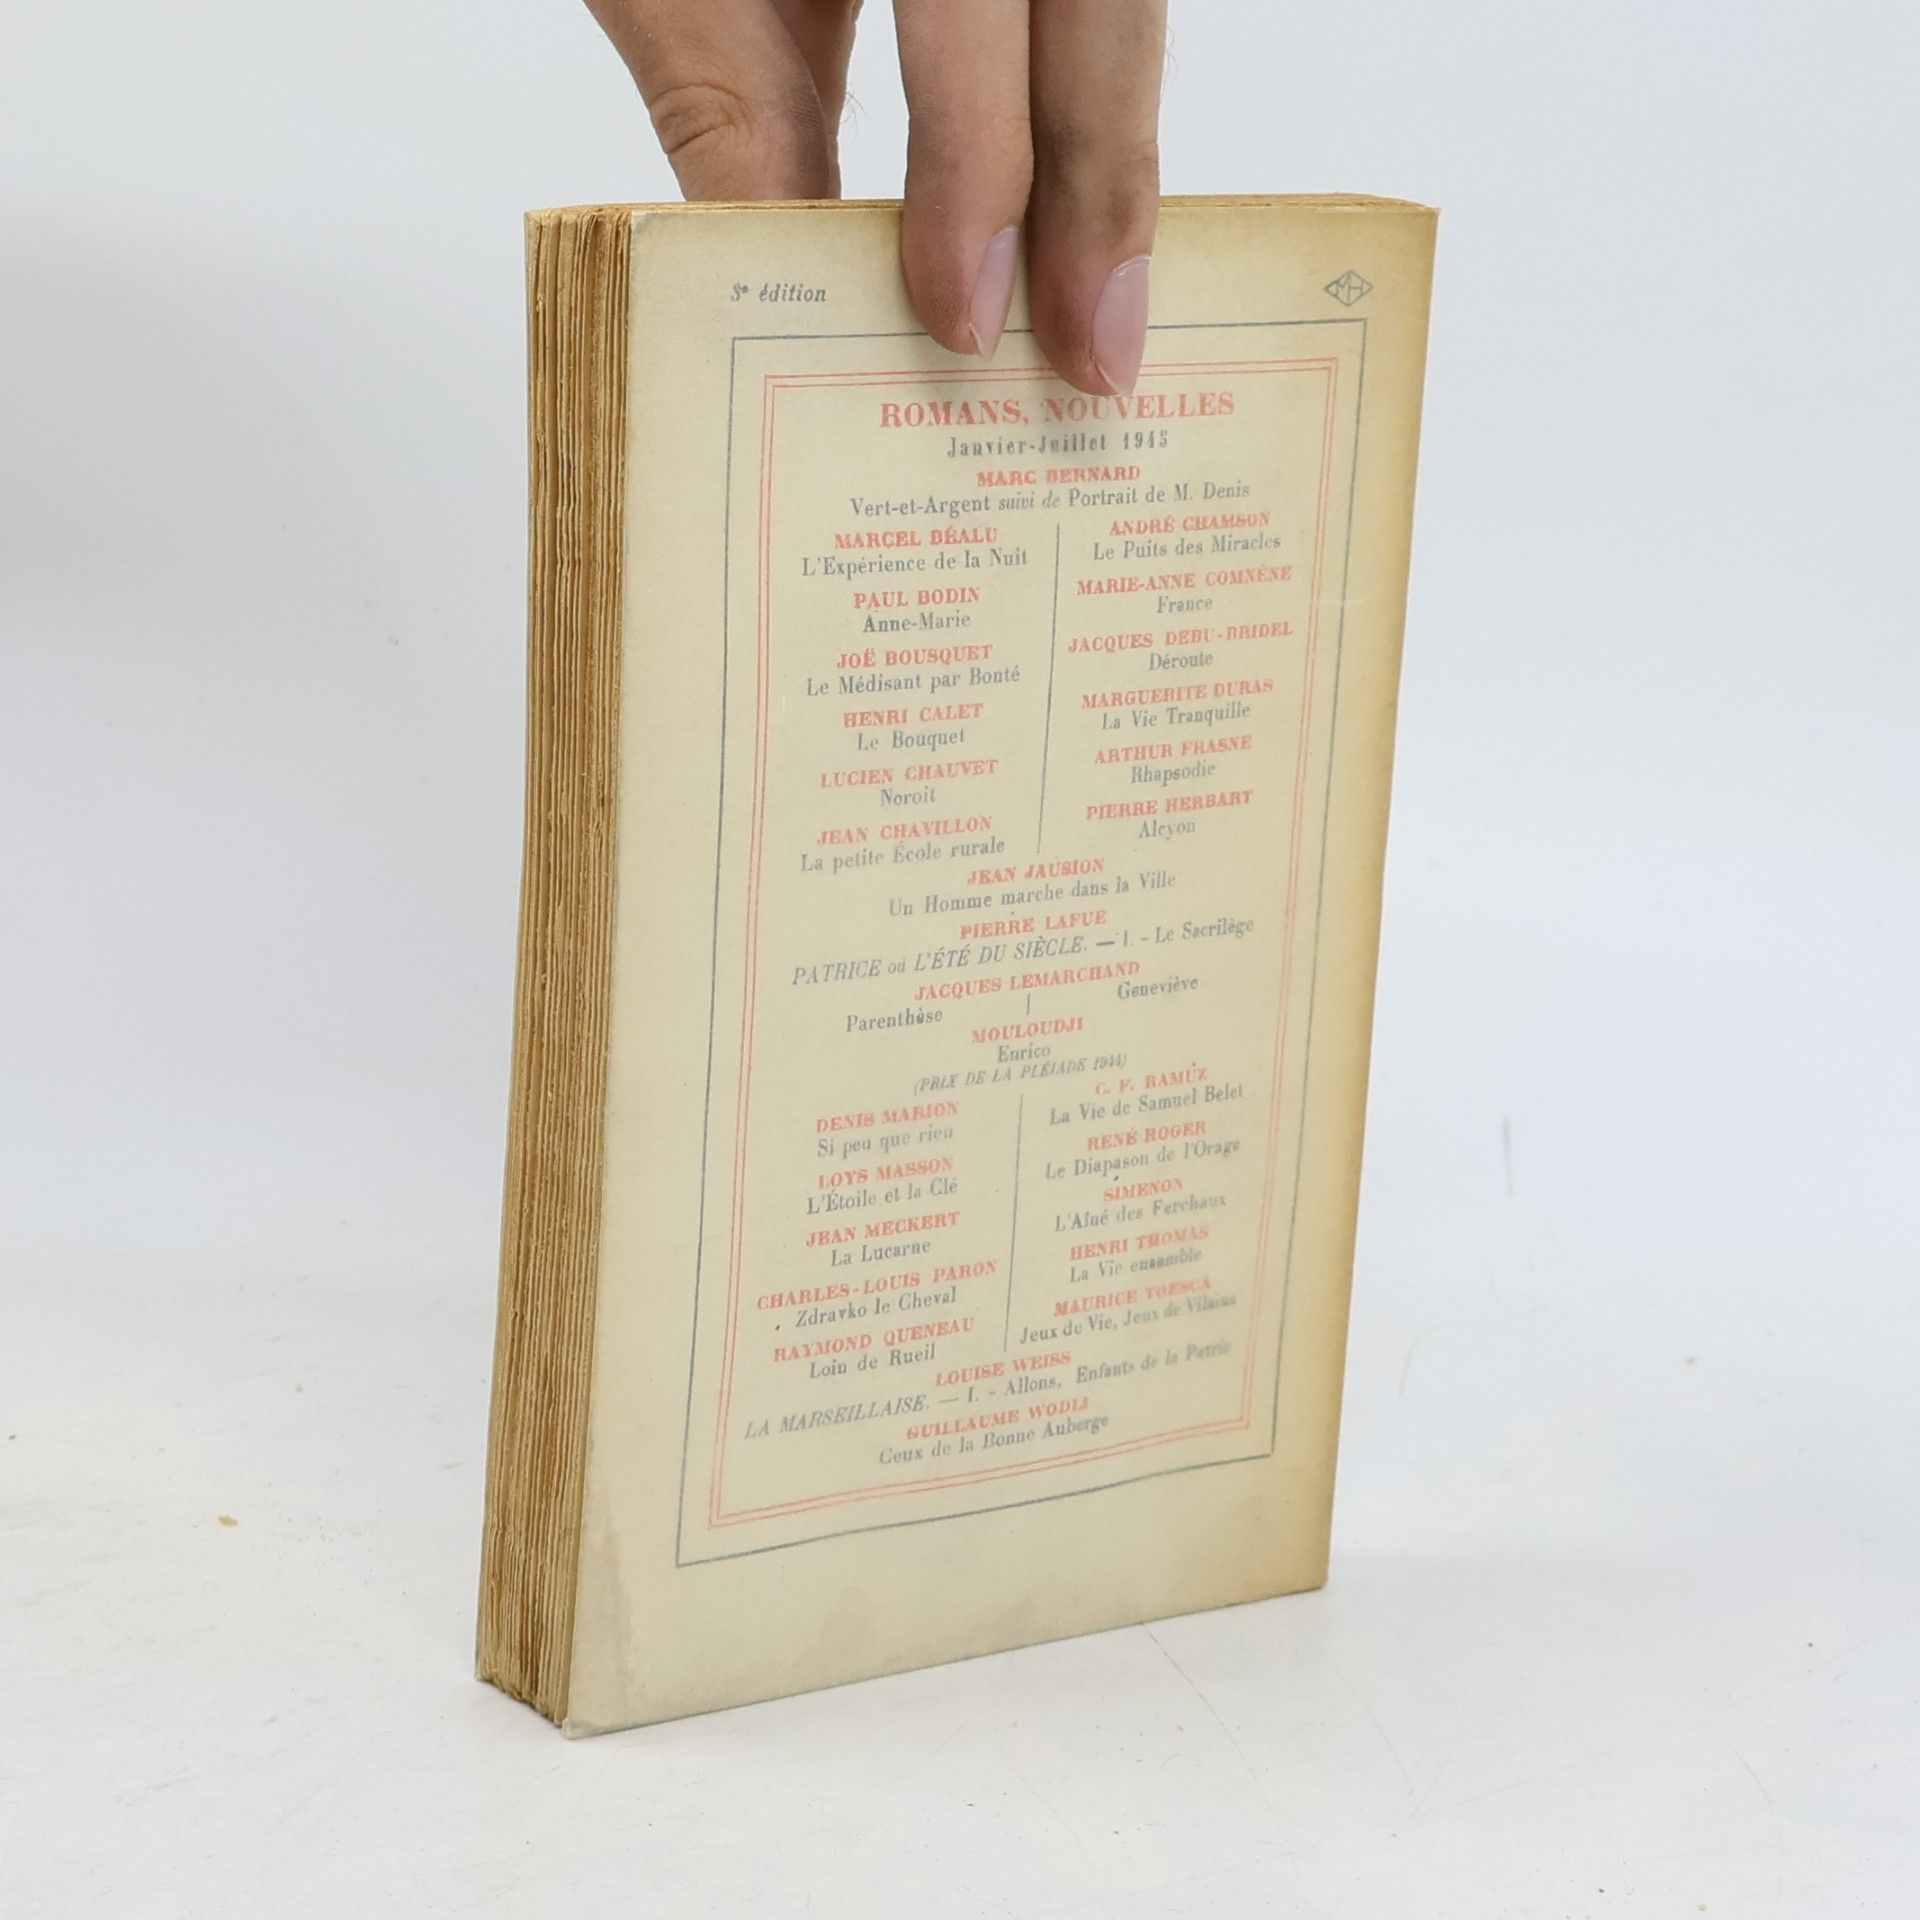 3e édition
MH
ROMANS, NOUVELLES
Janvier-Juillet 1945
MARC BERNARD
Vert-et-Argent suivi de Portrait de M. Denis
MARCEL BÉALU
L'Expérience de la Nuit
PAUL BODIN
Anne-Marie
JOË BOUSQUET
Le Médisant par Bonté
HENRI CALET
Le Bouquet
LUCIEN CHAUVET
Noroit
JEAN CHAVILLON
La petite École rurale
ANDRÉ CHAMSON
Le Puits des Miracles
MARIE-ANNE COMNÈNE
France
JACQUES DEBU-BRIDEL
Déroute
MARGUERITE DURAS
La Vie Tranquille
ARTHUR FRASNE
Rhapsodie
PIERRE HERBART
Alcyon
JEAN JAUSION
Un Homme marche dans la Ville
PIERRE LAFUE
PATRICE ou L'ÉTÉ DU SIÈCLE. — I. - Le Sacrilège
JACQUES LEMARCHAND
Parenthèse
Geneviève
MOULOUDJI
Enrico
(PRIX DE LA PLÉIADE 1944)
DENIS MARION
Si peu que rien
LOYS MASSON
L'Étoile et la Clé
JEAN MECKERT
La Lucarne
CHARLES-LOUIS PARON
Zdravko le Cheval
RAYMOND QUENEAU
Loin de Rueil
C. F. RAMUZ
La Vie de Samuel Belet
RENÉ ROGER
Le Diapason de l'Orage
SIMENON
L'Aîné des Ferchaux
HENRI THOMAS
La Vie ensemble
MAURICE TOESCA
Jeux de Vie, Jeux de Vilains
LOUISE WEISS
LA MARSEILLAISE. — I. - Allons, Enfants de la Patrie
GUILLAUME WODLI
Ceux de la Bonne Auberge